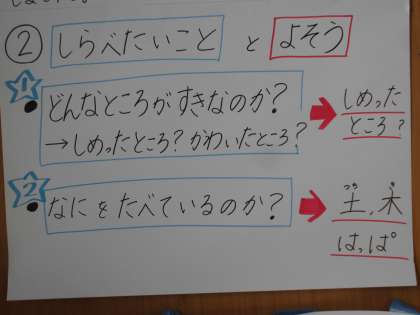 ② しらべたいこと と よそう
1 どんなところが すきなのか?
→ しめったところ? かわいたところ?
しめった
ところ?
2 なにを たべているのか?
土、木
はっぱ